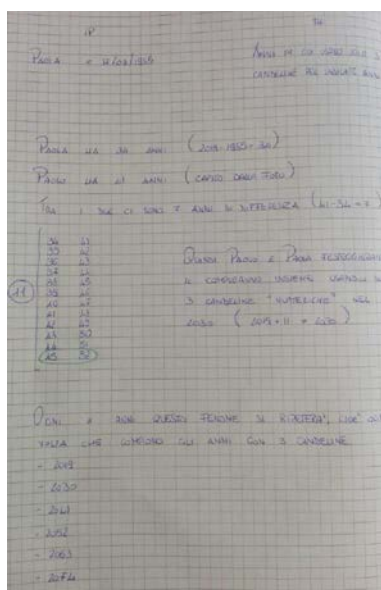 IP
TH
Paola =
Anni in cui
candeline per
Paola ha 34 anni (2019-1985=34)
Paolo ha 41 anni (capito dalla foto)
Tra i due ci sono 7 anni di differenza (41-34=7)
34 41
35 42
36 43
37 44
38 45
39 46
40 47
41 48
42 49
43 50
44 51
45 52
11
Quindi Paolo e Paola
il compleanno insieme usando
3 candeline "numeriche" nel
2030 (2019+11=2030)
Ogni 11 anni questo si ripeterà, cioè
volta che compiono gli anni con 3 candeline
- 2019
- 2030
- 2041
- 2052
- 2063
- 2074